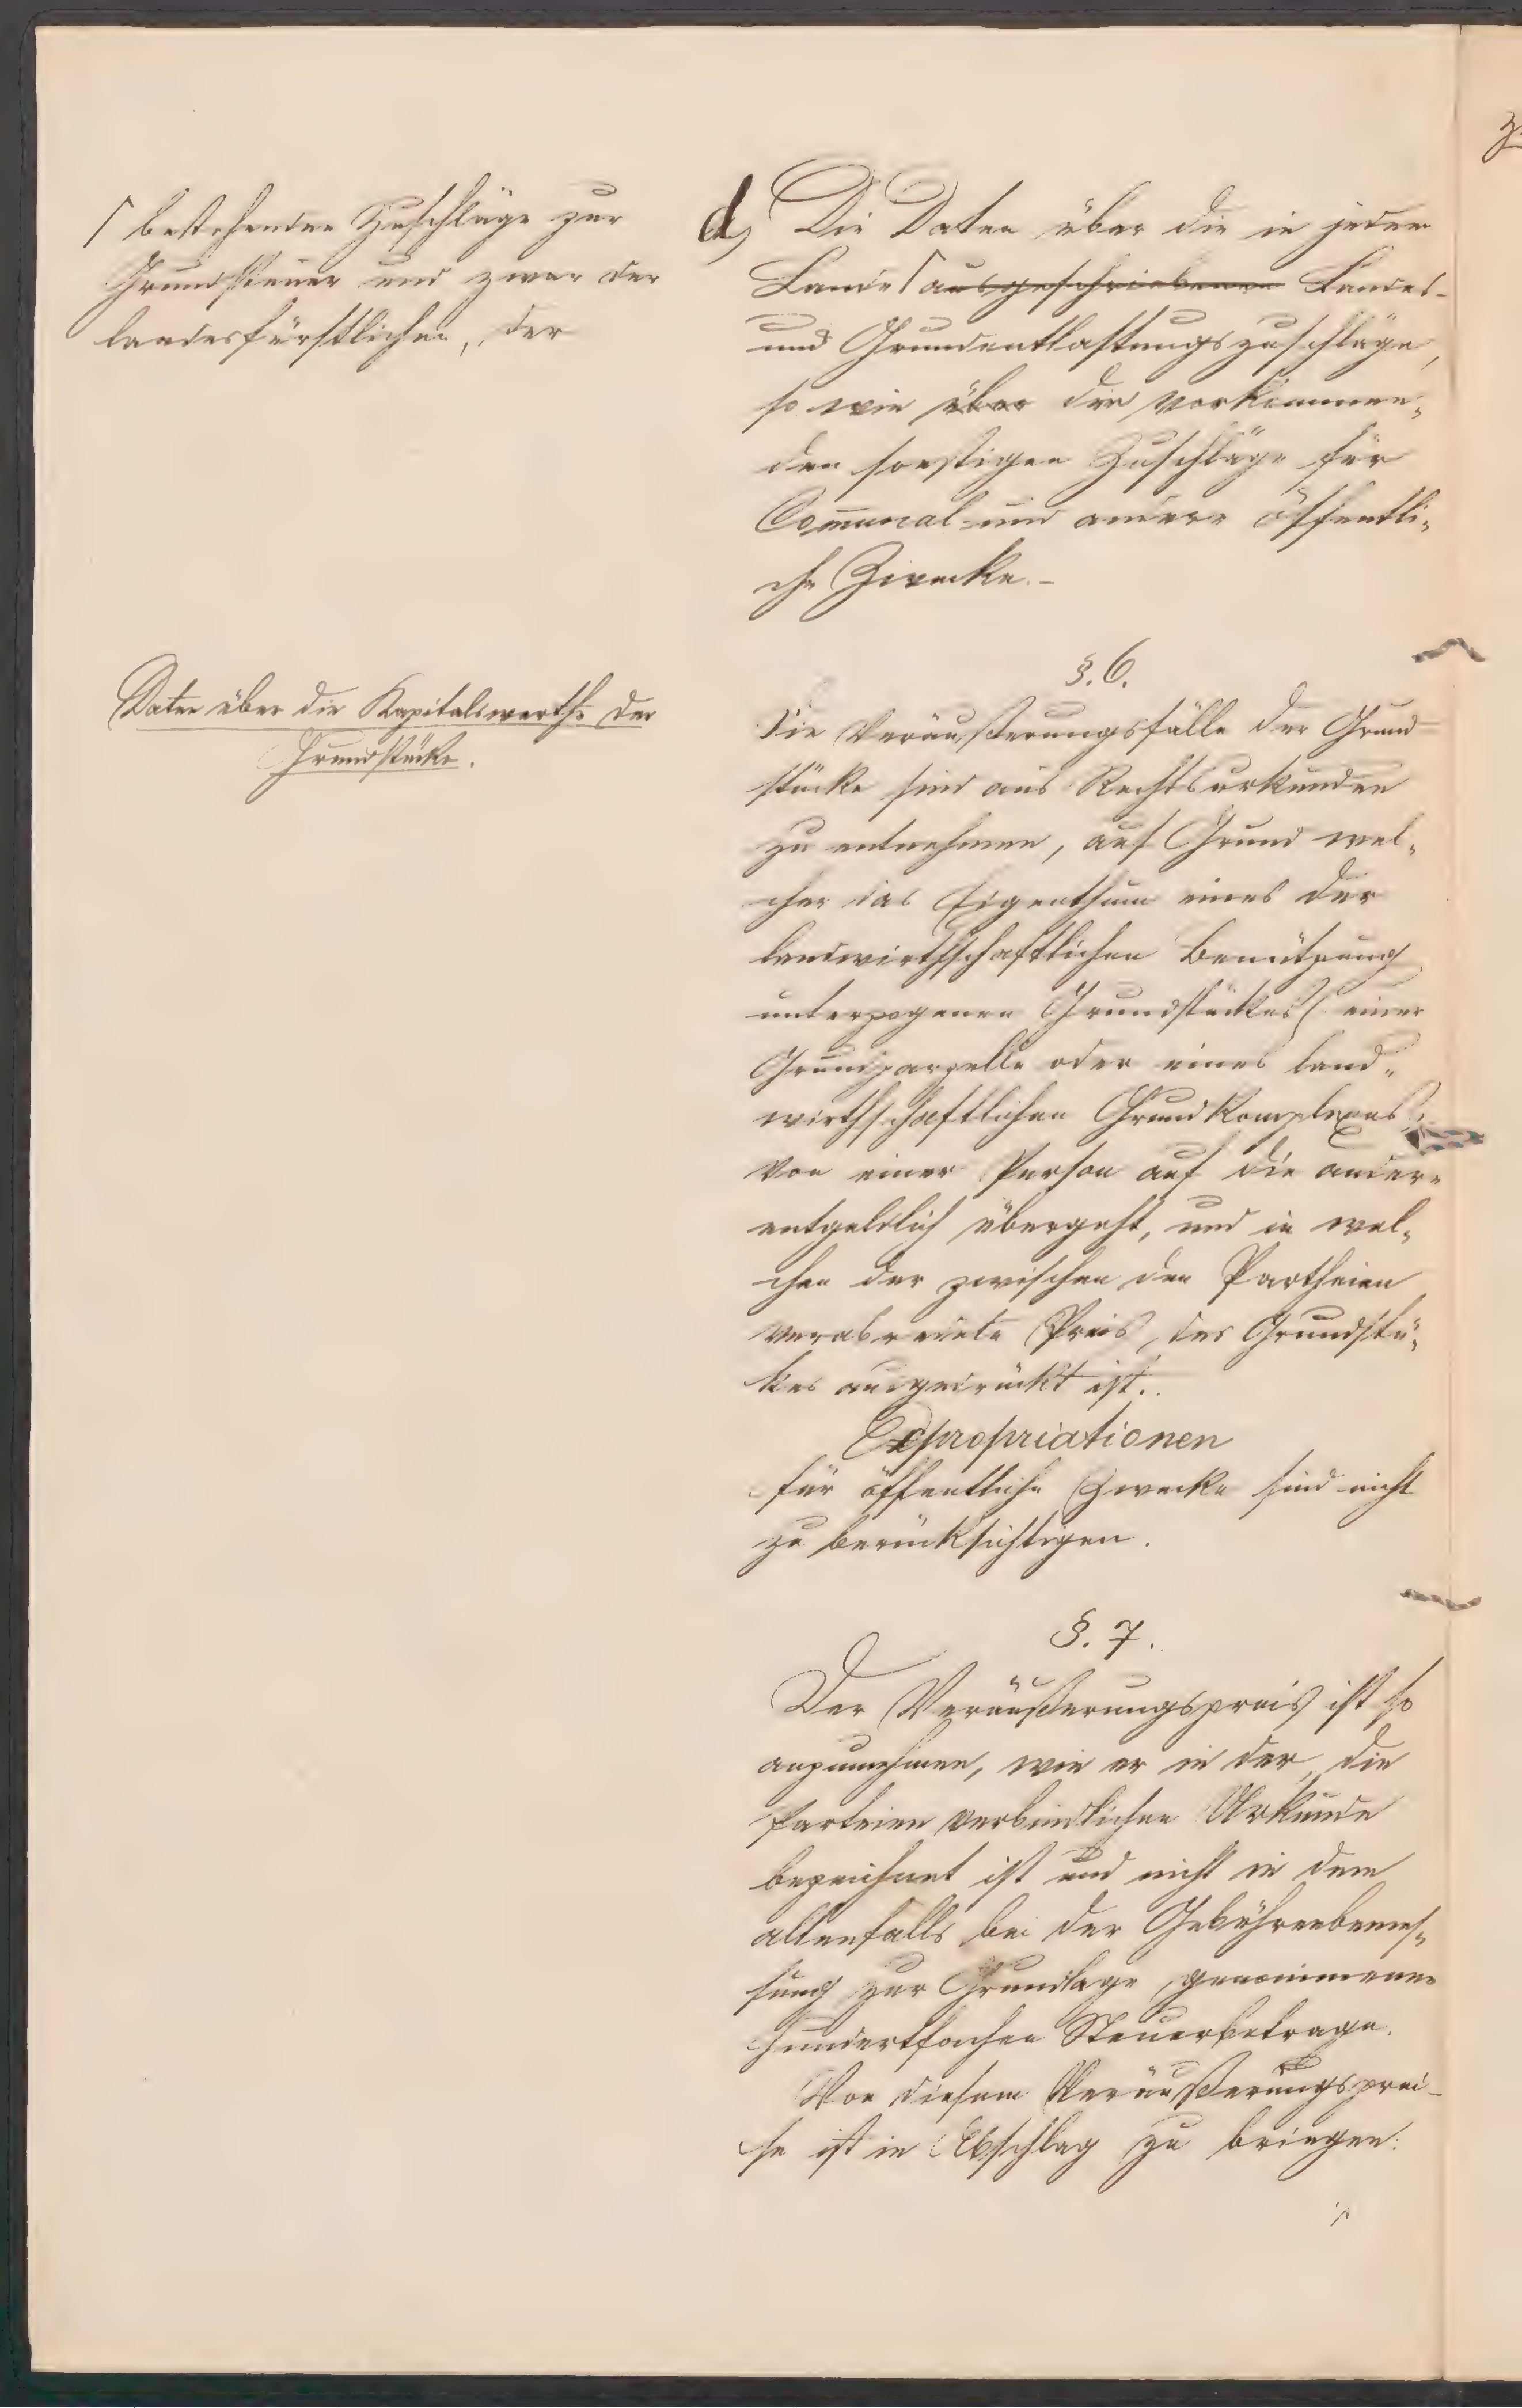 ⌈ bestehenden Zuschläge zur
Grundsteuer und zwar der
landesfürstlichen, der
d, Die Daten über die in jedem
Lande ⌈ ausgeschriebenen Landes-
und Grundentlastungszuschläge,
so wie über die vorkommen„
den sonstigen Zuschläge für
Communal- und andere öffentli„
che Zwecke.-
§. 6.
Daten über die Kapitalswerthe der
Grundstücke.
Die Veräußerungsfälle der Grund=
stücke sind aus Rechtsurkunden
zu entnehmen, auf Grund wel„
cher das Eigenthum eines der
landwirthschaftlichen Benützung
unterzogenen Grundstückes (einer
Grundparzelle oder eines land„
wirthschaftlichen Grundkomplexes)
von einer Person auf die andere
entgeldlich übergeht, und in wel„
chen der zwischen den Partheien
verabredete Preis des Grundstü„
kes ausgedrückt ist.
Expropriationen
für öffentliche Zwecke sind nicht
zu berücksichtigen.
§. 7.
Der Veräußerungspreis ist so
anzunehmen, wie er in der, die
Parteien verbindlichen Urkunde
bezeichnet ist und nicht in dem
allenfalls bei der Gebührenbemes„
sung zur Grundlage genommenen
hundertfachen Steuerbetrage.
Von diesem Veräußerungsprei-
se ist in Abschlag zu bringen:
⁒